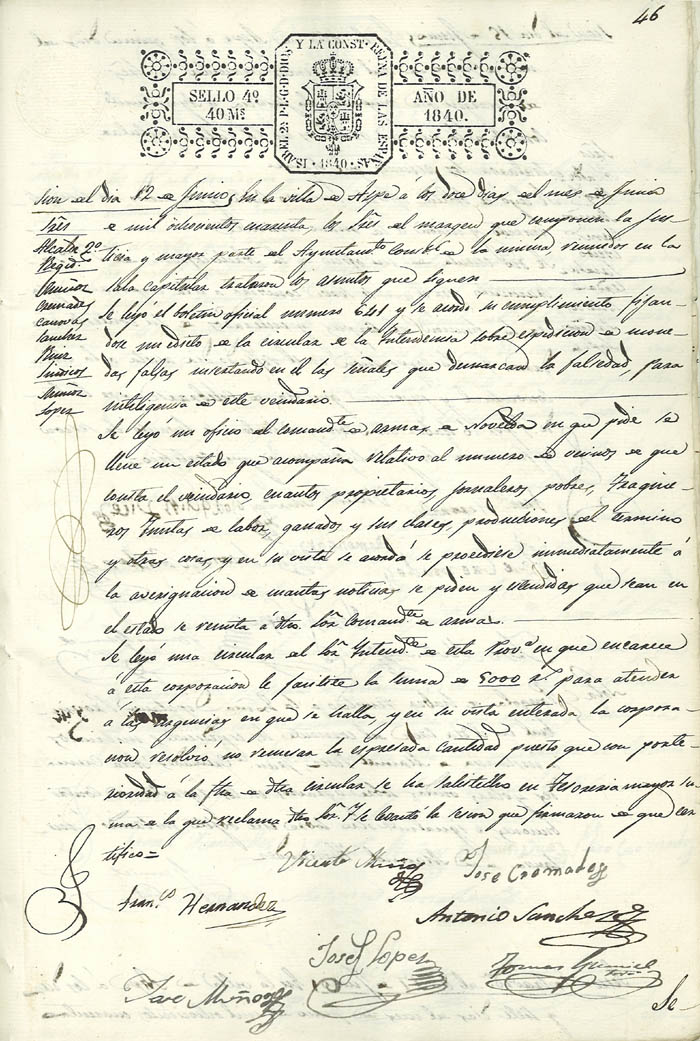 46
ISABEL 2ª P.L.G.D.DIOS Y LA CONST. REYNA DE LAS ESPAÑAS
1840
SELLO 4º
40 Mˢ
AÑO DE
1840.
sion del dia 12 de Junio, En la villa de Aspe á los doce dias del mes de Junio
Sres
Alcalde 2º
Regidˢ
Muñoz
Cremades
Canovas
Sanchez
Ruiz
Sindicos
Muñoz
Lopez
de mil ochocientos cuarenta, los Sres del margen que componen la Jus
ticia y mayor parte del Ayuntamᵗᵒ Constˡ de la misma reunidos en la
sala capitular trataron los asuntos que siguen
Se leyó el boletin oficial numero 641 y se acordó su cumplimiento fijan
dose un edicto de la circular de la Intendencia sobre espedicion de mone
das falsas insertando en él las señales que demarcan la falsedad, para
inteligencia de este vecindario.
Se leyó un oficio del comandᵗᵉ de armas de Novelda en que pide se
llene un estado que acompaña relativo al numero de vecinos de que
consta el vecindario, cuantos propietarios, jornaleros, pobres, Tragine
ros, Yuntas de labor, ganados y sus clases, producciones del termino
y otras cosas, y en su vista se acordó se procediese inmediatamente á
la averiguacion de cuantas noticias se piden y estendidas que sean en
el estado se remita á dho. Sor. Comandᵗᵉ de armas.
Se leyó una circular del Sor. Intendᵗᵉ de esta Provᵃ en que encarece
á esta corporacion le facilite la suma de 5000 rˢ para atender
á las urgencias en que se halla, y en su vista enterada la corpora
cion resolvió no remesar la espresada cantidad puesto que con poste
rioridad á la fha de dha circular se ha satisfecho en Tesoreria mayor su
ma de la que reclama dho Sor. Y se levantó la sesion que firmaron de que cer
tifico=
Vicente Muñoz
Jose Cremades
Franᶜᵒ Hernandez
Antonio Sanchez
Josef Lopez
Jose Muñoz
Se-